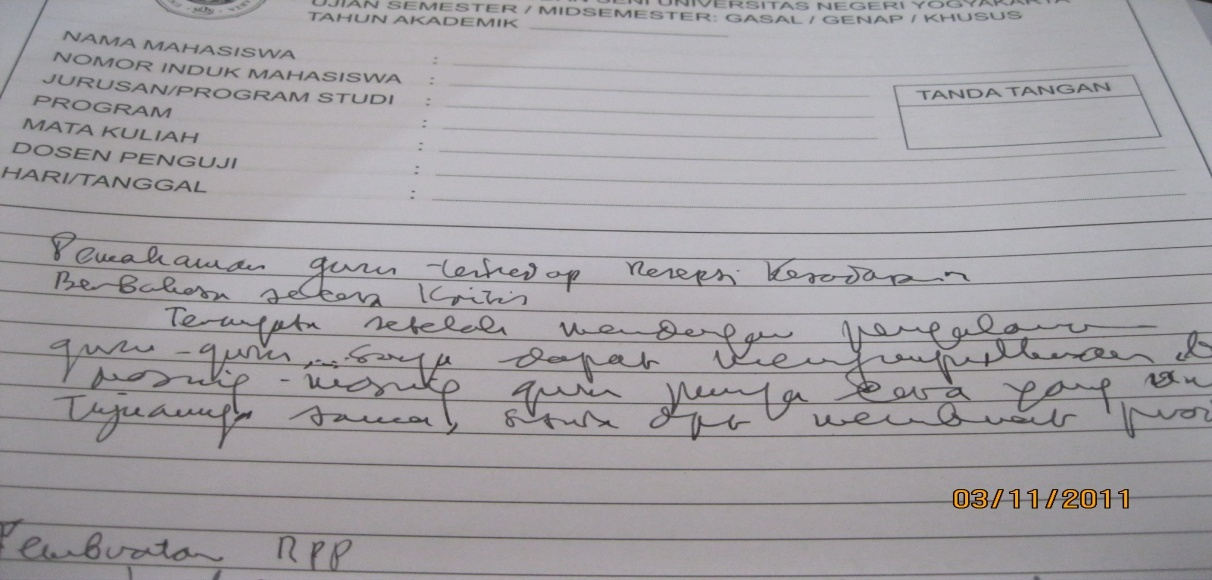 SENI UNIVERSITAS NEGERI YOGYAKARTA
UJIAN SEMESTER / MIDSEMESTER: GASAL / GENAP / KHUSUS
TAHUN AKADEMIK
NAMA MAHASISWA :
NOMOR INDUK MAHASISWA :
JURUSAN/PROGRAM STUDI :
PROGRAM :
MATA KULIAH
DOSEN PENGUJI :
HARI/TANGGAL :
TANDA TANGAN
Pemahaman guru terhadap Resepsi Kesadaran
Berbahasa secara Kritis
Ternyata setelah mendengar pengalaman
guru-guru, saya dapat menyimpulkan
masing-masing guru punya cara yang
Tujuannya sama, siswa dpt membuat
03/11/2011
Pembuatan RPP